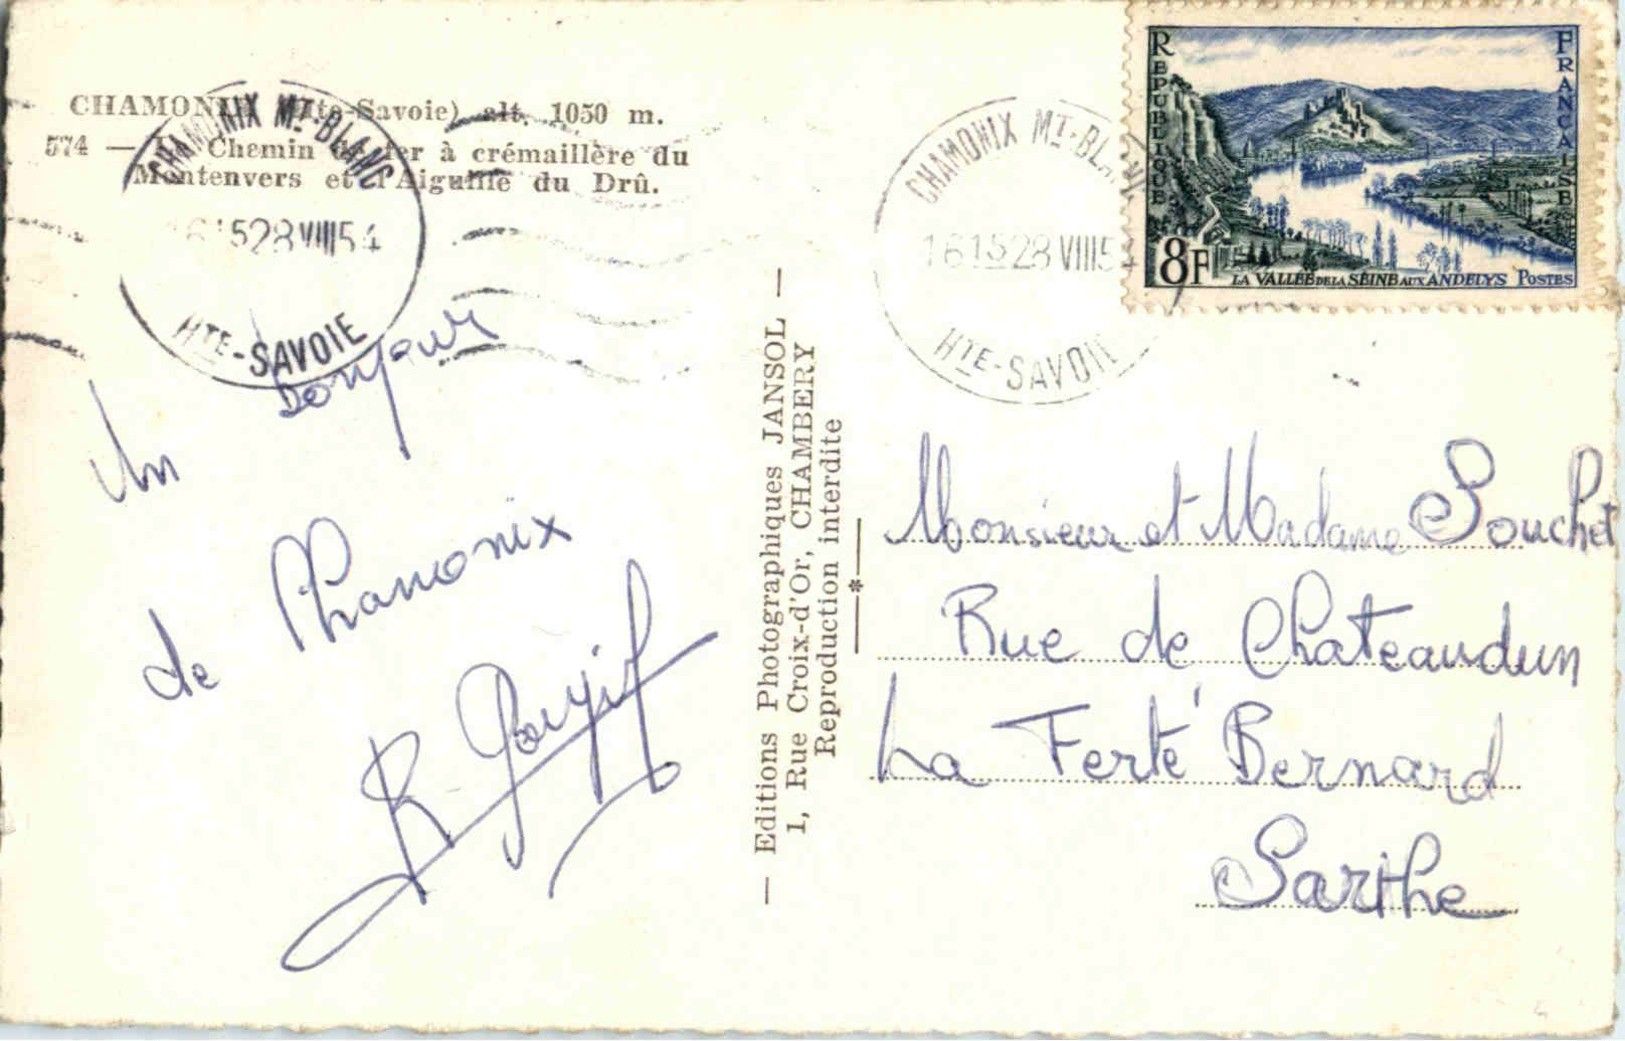 CHAMONIX (Hte-Savoie) alt. 1050 m.
574 — Le Chemin de fer à crémaillère du
Montenvers et l'Aiguille du Drû.
CHAMONIX MT-BLANC
1615 28 VIII 54
HTE-SAVOIE
Un bonjour
de Chamonix
— Editions Photographiques JANSOL —
1, Rue Croix-d'Or, CHAMBERY
Reproduction interdite
CHAMONIX MT-BLANC
1615 28 VIII 54
HTE-SAVOIE
REPUBLIQUE FRANCAISE
8F
LA VALLÉE DE LA SEINE AUX ANDELYS POSTES
Monsieur et Madame Souchet
Rue de Chateaudun
La Ferté Bernard
Sarthe